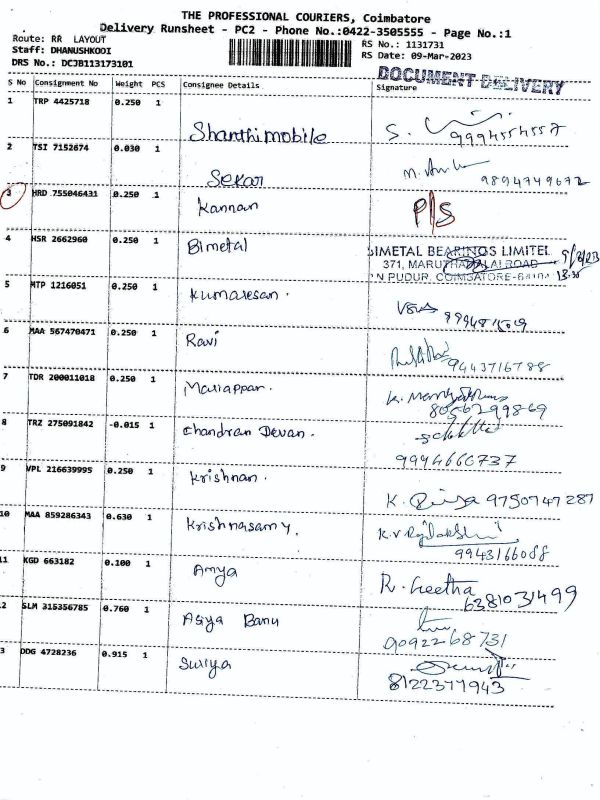 THE PROFESSIONAL COURIERS, Coimbatore
Delivery Runsheet - PC2 - Phone No.:0422-3505555 - Page No.:1
Route: RR LAYOUT
Staff: DHANUSHKODI
DRS No.: DCJB113173101
RS No.: 1131731
RS Date: 09-Mar-2023
DOCUMENT DELIVERY
S No Consignment No Weight PCS Consignee Details Signature
1 TRP 4425718 0.250 1 Shanthimobile 9994554557
2 TSI 7152674 0.030 1 Sekar 9894749672
3 HRD 755046431 0.250 1 Kannan P/S
4 HSR 2662960 0.250 1 Bimetal
BIMETAL BEARINGS LIMITED
371, MARUTHAMALAI ROAD
N PUDUR, COIMBATORE
5 MTP 1216051 0.250 1 Kumaresan.
6 MAA 567470471 0.250 1 Ravi 9443716788
7 TDR 200011018 0.250 1 Mariappan. 8056299869
8 TRZ 275091842 -0.015 1 Chandran Devan. 9994660737
9 VPL 216639995 0.250 1 Krishnan. K. Priya 9750947287
10 MAA 859286343 0.630 1 Krishnasamy. 9943166088
11 KGD 663182 0.100 1 Amya R. Geetha 6381031499
2 SLM 315356785 0.760 1 Asiya Banu 9092268731
3 DDG 4728236 0.915 1 Suriya 8122377943